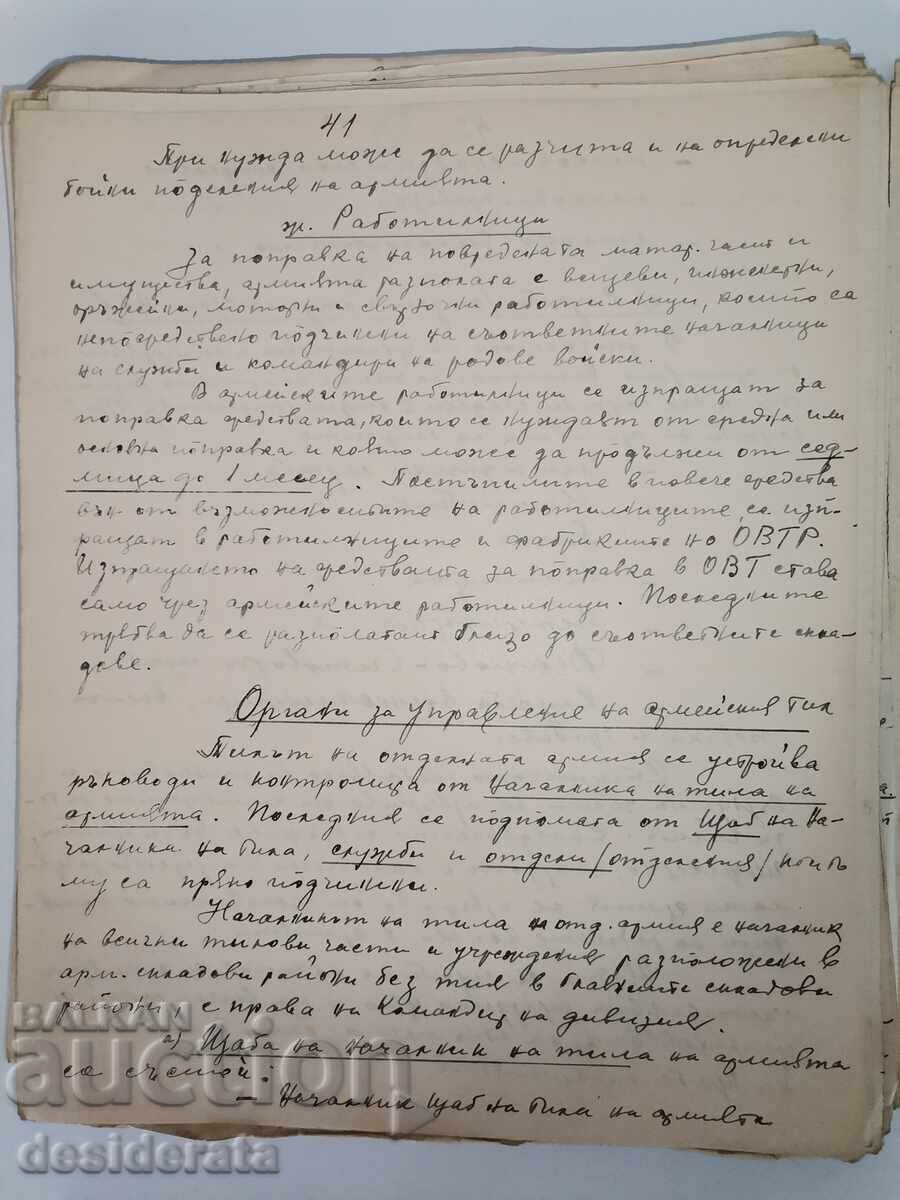 41
При нужда може да се разчита и на определени
бойни поделения на армията.
ж. Работилници
За поправка на повредената матер. част и
имущества, армията разполага с вещеви, инженерни,
оръжейни, моторни и свързочни работилници, които са
непосредствено подчинени на съответните началници
на служби и командири на родове войски.
В армейските работилници се изпращат за
поправка средствата, които се нуждаят от средна или
основна поправка и която може да продължи от сед-
мица до 1 месец. Постъпилите в повече средства
вън от възможностите на работилниците, се изп-
ращат в работилниците и фабриките на ОВТР.
Изпращането на средствата за поправка в ОВТ става
само чрез армейските работилници. Последните
трябва да се разполагат близо до съответните скла-
дове.
Органи за управление на армейския тил
Тилът на отделната армия се устройва
ръководи и контролира от Началника на тила на
армията. Последния се подпомага от Щаб на На-
чалника на тила, служби и отдели /отделения/ които
му са пряко подчинени.
Началникът на тила на отд. армия е началник
на всички тилови части и учреждения разположени в
арм. складови райони без тия в главните складови
райони, с права на Командир на дивизия.
а) Щаба на началник на тила на армията
се състои:
– Началник щаб на тила на армията
BALKAN
auction
desiderata